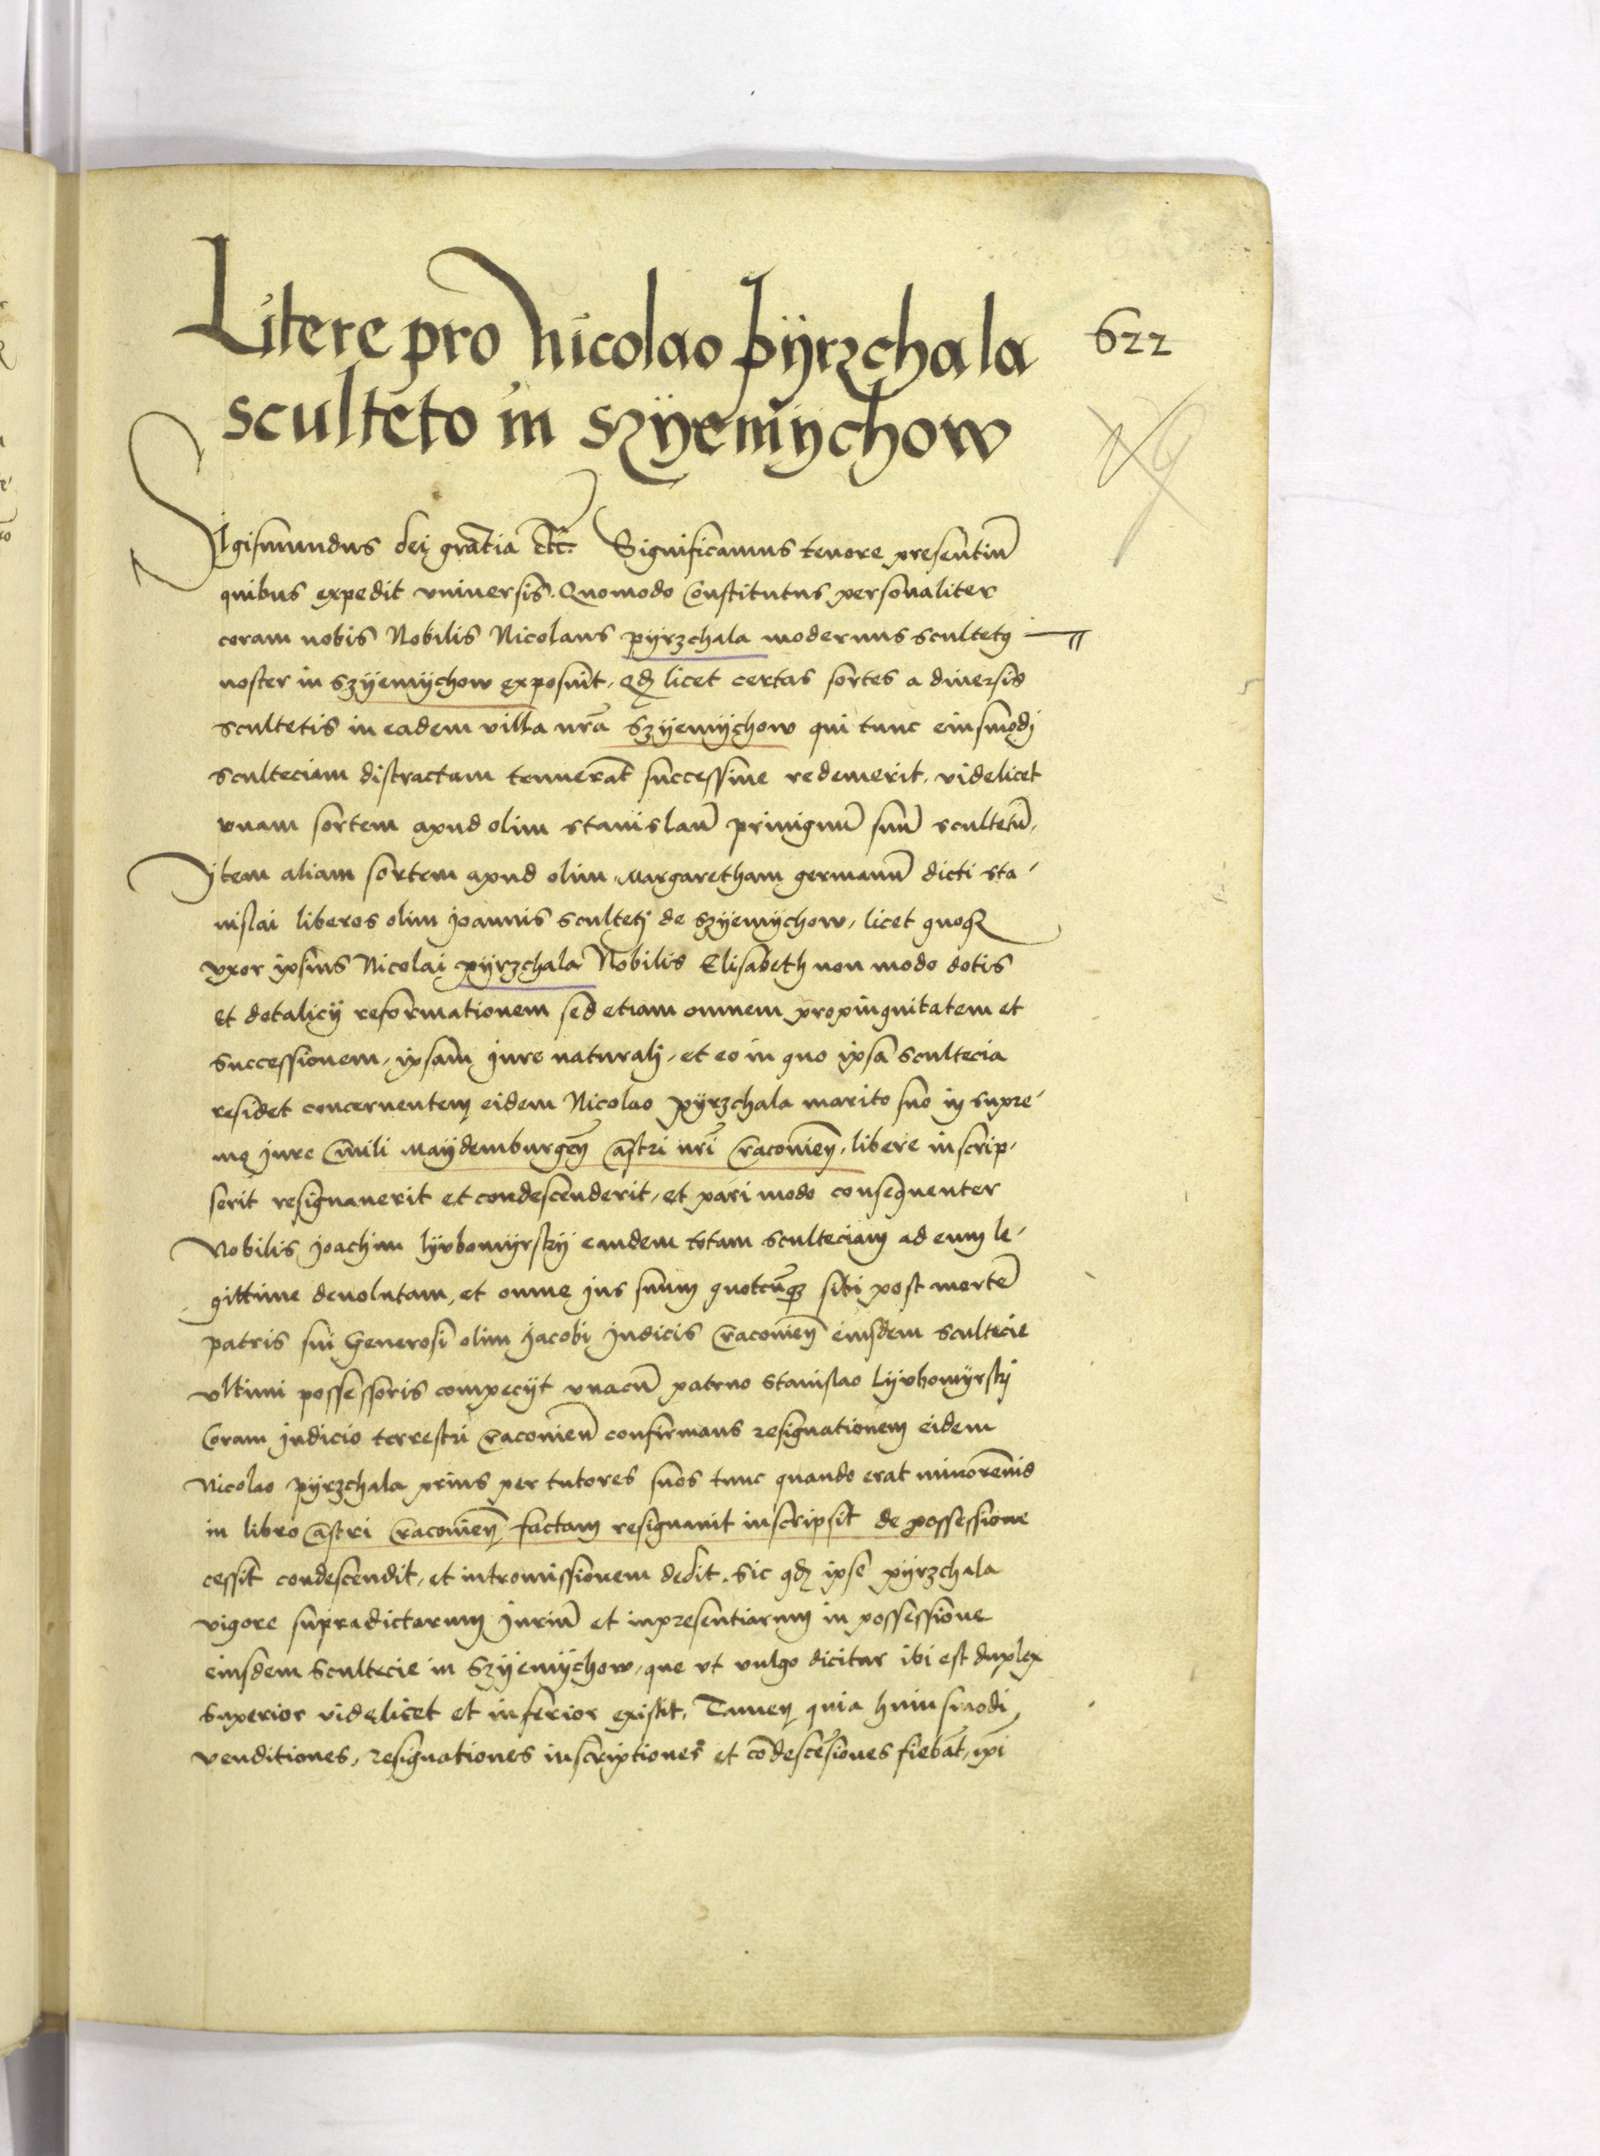 Litere pro Nicolao pÿrzchala
622
sculteto in Szÿemÿchow
Sigismundus dei gratia etc. Significamus tenore presentiu̅
quibus expedit vniuersis. Quomodo Constitutus personaliter
coram nobis Nobilis Nicolaus pÿrzchala modernus scultetꝯ
noster in Szÿemÿchow exposuit, qđ licet certas sortes a diuersis
scultetis in eadem villa nr̅a Szÿemÿchow qui tunc eiusmodj
sculteciam distractam tenuera̅t successiue redemerit, videlicet
vnam sortem apud olim Stanislau̅ priuignu̅ suu̅ scultetu̅,
Item aliam sortem apud olim Margaretham germanu̅ dicti Sta-
nislai liberos olim Joannis scultetj de Szÿemÿchow, licet quoqꝫ
vxor ipsius Nicolai pÿrzchala Nobilis Elisabeth non modo dotis
et dotalicÿ reformationem sed etiam omnem propinquitatem et
successionem, ipsam jure naturalj, et eo in quo ipsa scultecia
residet concernentem eidem Nicolao pÿrzchala marito suo in supre-
mo jure Ciuili Maÿdemburgen̅ castri nr̅i Cracouien̅, libere inscrip-
serit resignauerit et condescenderit, et pari modo consequenter
Nobilis Joachim lÿubomÿrskÿ eandem totam sculteciam ad eum le-
gittime deuolutam, et omne jus suum quotcu̅qꝫ sibi post morte̅
patris sui Generosi olim Jacobi Judicis Cracouien̅ eiusdem scultecie
vltimi possessoris compecÿt vnacu̅ patruo Stanislao Lÿubomÿrskÿ
Coram judicio terrestri Cracouien̅ confirmans resignationem eidem
Nicolao pÿrzchala prius per tutores suos tunc quando erat minorennis
in libro castri Cracouien̅ factam resignauit inscripsit de possessione
cessit condescendit, et intromissionem dedit. Sic qđ ipse pÿrzchala
vigore supradictorum juriu̅ et inpresentiarum in possessione
eiusdem scultecie in Szÿemÿchow, que vt vulgo dicitur ibi est duplex
superior videlicet et inferior existit, Tamen quia huiusmodi
venditiones, resignationes inscriptiones et co̅desce̅siones fieba̅t, ip̅i